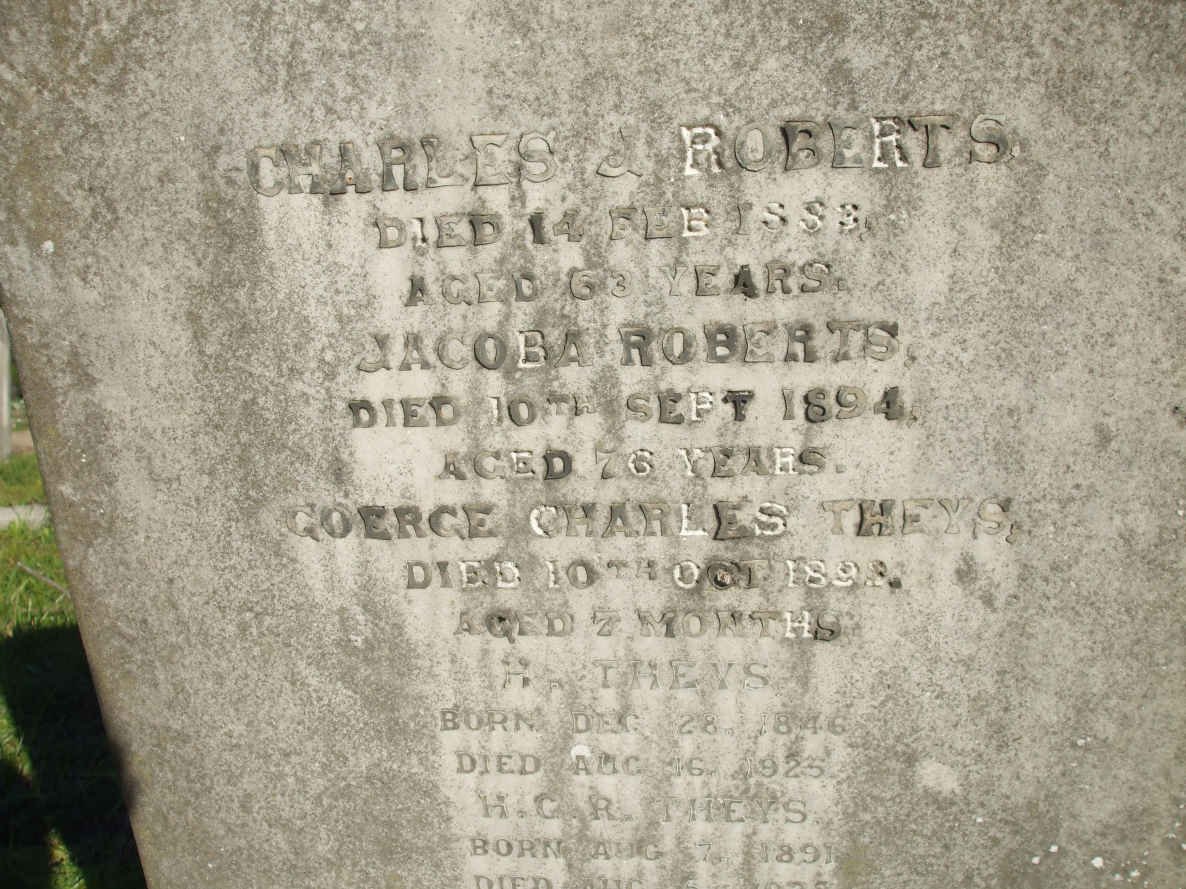 CHARLES J ROBERTS.
DIED 14 FEB 1883,
AGED 63 YEARS.
JACOBA ROBERTS,
DIED 10TH SEPT 1894,
AGED 76 YEARS.
GOERGE CHARLES THEYS,
DIED 10TH OCT 1893.
AGED 7 MONTHS
H. THEYS
BORN DEC. 28. 1846
DIED AUG 16. 1925.
H.C.R. THEYS.
BORN AUG 7. 1891
DIED AUG